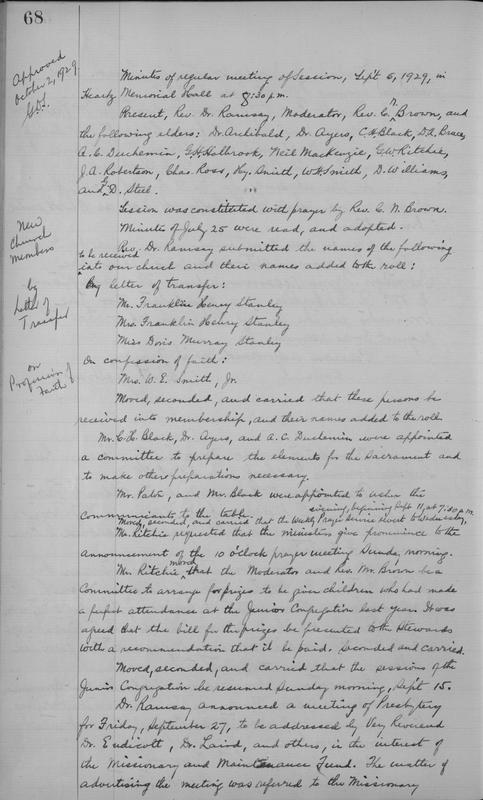 68
Approved
October 2, 1929
Minutes of regular meeting of Session, Sept 6, 1929, in
Memorial Hall at 8:30 p.m.
Present, Rev. Dr. Ramsay, Moderator, Rev. C. N. Brown, and
the following elders: Dr. Archibald, Dr. Ayers, C.H. Black, D.A. Bruce,
A. C. Duchemin, G.H. Holbrook, Neil MacKenzie, G.W. Ritchie,
J.A. Robertson, Chas. Ross, Hy. Smith, W.H. Smith, D. Williams,
and G. D. Steel.
Session was constituted with prayer by Rev. C. N. Brown.
Minutes of July 25 were read, and adopted.
New
Church
Members
Rev. Dr. Ramsay submitted the names of the following
to be received
into our church and their names added to the roll:
by
Letter of
Transfer
By letter of transfer:
Mr. Franklin Henry Stanley
Mrs. Franklin Henry Stanley
Miss Doris Murray Stanley
on
Profession of
Faith
On confession of faith:
Mrs. W. E. Smith, Jr
Moved, seconded, and carried that these persons be
received into membership, and their names added to the roll
Mr. C. H. Black, Dr. Ayers, and A. C. Duchemin were appointed
a committee to prepare the elements for the Sacrament and
to make other preparations necessary.
Mr. and Mr. Black were appointed to usher the
communicants to the table.
Moved, seconded, and carried that the Weekly Prayer Service revert to Wednesday,
evening, beginning Sept 11, at 7:30 p.m.
Mr. Ritchie requested that the ministers give prominence to the
announcement of the 10 o'clock prayer meeting Sunday morning.
Mr. Ritchie moved that the Moderator and Rev. Mr. Brown be a
Committee to arrange for prizes to be given children who had made
a perfect attendance at the Junior Congregation last year. It was
agreed that the bill for the prizes be presented to the Stewards
with a recommendation that it be paid. Seconded and carried.
Moved, seconded, and carried that the sessions of the
Junior Congregation be resumed Sunday morning, Sept 15.
Dr. Ramsay announced a meeting of Presbytery
for Friday, September 27, to be addressed by Very Reverend
Dr. Endicott, Dr. Laird, and others, in the interest of
the Missionary and Maintenance Fund. The matter of
advertising the meeting was referred to the Missionary